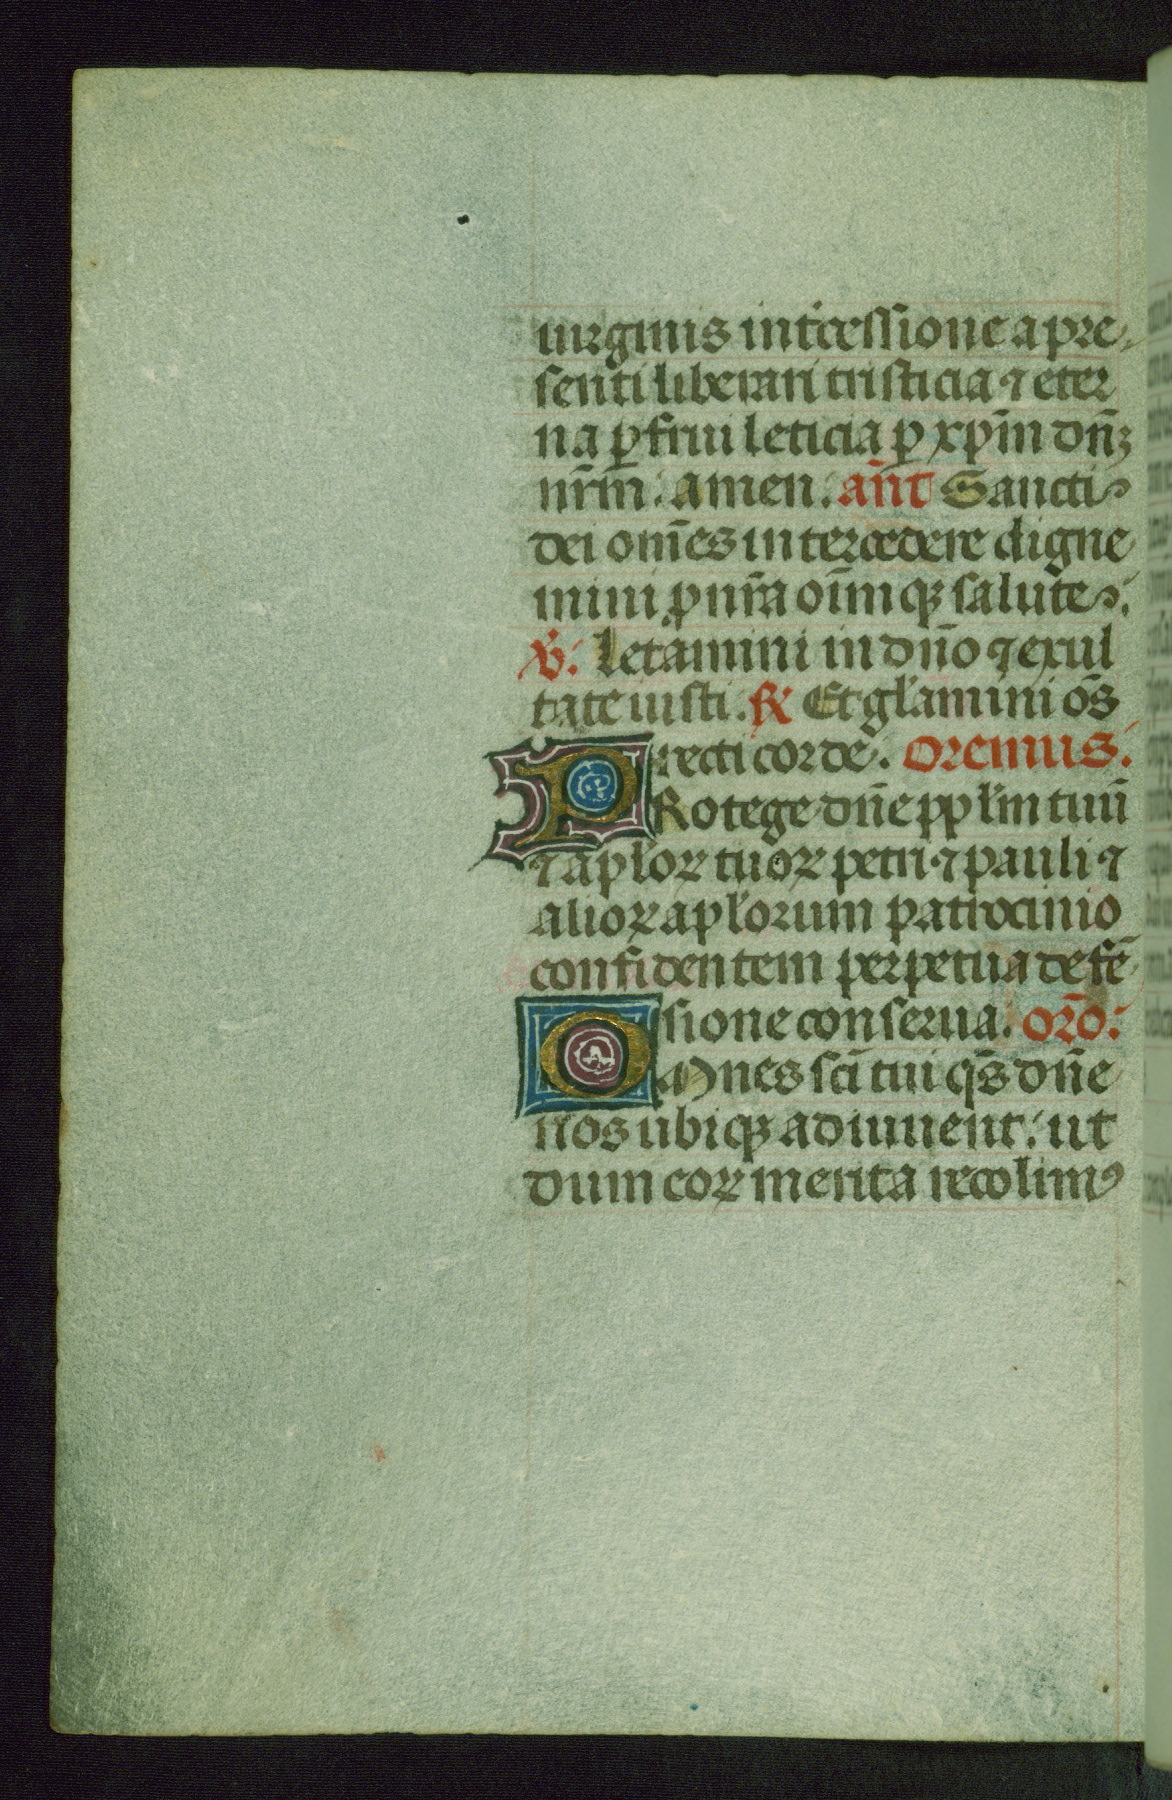 uirginis int̄cessione a pre
senti liberari tristicia ⁊ eter
na ꝑfrui leticia ꝑ xp̄m dn̄ꝫ
nr̄m. amen. an̄t Sancti
dei om̄es intercedere digne
mini ꝓ nr̄a oīmqꝫ salute.
℣. Letamini in dn̄o ⁊ exul
tate iusti. ℟ Et gl̄amini om̄s
recti corde. Oremus.
PRotege dn̄e pp̄lm tuū
⁊ apl̄oꝝ tuoꝝ petri ⁊ pauli ⁊
alioꝝ apl̄orum patrocinio
confidentem perpetua defē
sione conserua. or̄o:
OMnes sc̄i tui qs̄ dn̄e
nos ubiqꝫ adiuuent: ut
dum eoꝝ merita recolimꝰ